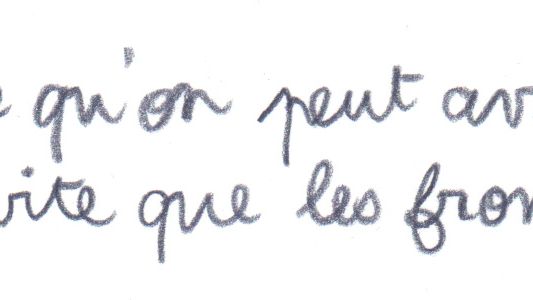 qu'on peut av
vite que les fron